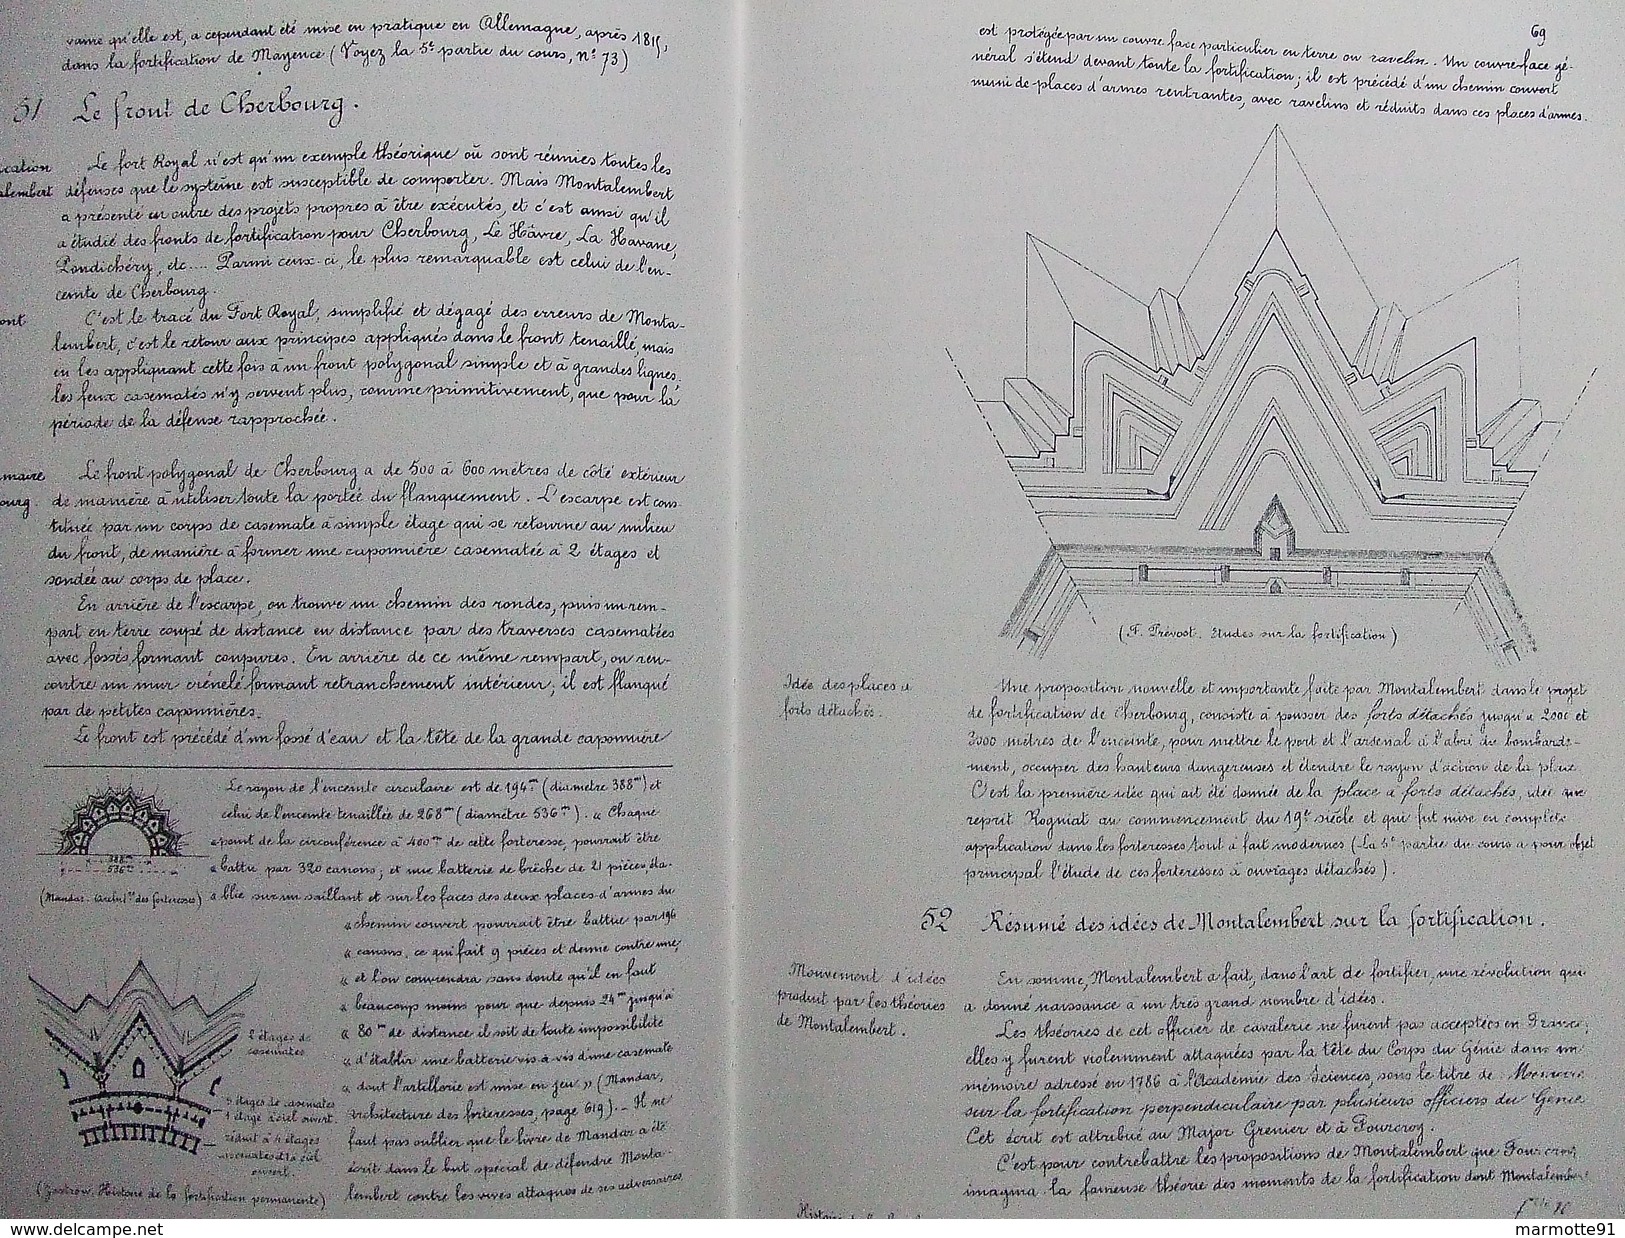 vaine qu'elle est, a cependant été mise en pratique en Allemagne, après 1815,
dans la fortification de Mayence (Voyez la 5e partie du cours, n° 73)
51 Le front de Cherbourg.
Le fort Royal n'est qu'un exemple théorique où sont réunies toutes les
défenses que le système est susceptible de comporter. Mais Montalembert
a présenté en outre des projets propres à être exécutés, et c'est ainsi qu'il
a étudié des fronts de fortification pour Cherbourg, Le Hâvre, La Havane,
Pondichéry, etc.... Parmi ceux-ci, le plus remarquable est celui de l'en-
ceinte de Cherbourg.
C'est le tracé du Fort Royal, simplifié et dégagé des erreurs de Monta-
lembert, c'est le retour aux principes appliqués dans le front tenaillé, mais
en les appliquant cette fois à un front polygonal simple et à grandes lignes,
les feux casematés n'y servent plus, comme primitivement, que pour la
période de la défense rapprochée.
Le front polygonal de Cherbourg a de 500 à 600 mètres de côté extérieur
de manière à utiliser toute la portée du flanquement. L'escarpe est cons-
tituée par un corps de casemate à simple étage qui se retourne au milieu
du front, de manière à former une caponnière casematée à 2 étages et
soudée au corps de place.
En arrière de l'escarpe, on trouve un chemin des rondes, puis un rem-
part en terre coupé de distance en distance par des traverses casematées
avec fossés formant coupures. En arrière de ce même rempart, on ren-
contre un mur crénelé formant retranchement intérieur; il est flanqué
par de petites caponnières.
Le front est précédé d'un fossé d'eau et la tête de la grande caponnière
Le rayon de l'enceinte circulaire est de 194m (diamètre 388m) et
celui de l'enceinte tenaillée de 268m (diamètre 536m). « Chaque
« point de la circonférence à 400m de cette forteresse, pourrait être
« battu par 320 canons; et une batterie de brèche de 21 pièces, éta-
« blie sur un saillant et sur les faces des deux places d'armes du
« chemin couvert pourrait être battue par 196
« canons, ce qui fait 9 pièces et demie contre une,
« et l'on conviendra sans doute qu'il en faut
« beaucoup moins pour que depuis 24m jusqu'à
« 80m de distance il soit de toute impossibilité
« d'établir une batterie vis à vis d'une casemate
« dont l'artillerie est mise en jeu » (Mandar,
Architecture des forteresses, page 619). - Il ne
faut pas oublier que le livre de Mandar a été
écrit dans le but spécial de défendre Monta-
lembert contre les vives attaques de ses adversaires
388m
536m
(Mandar. Archit.re des forteresses)
2 étages de
casemates
étages de casemates
1 étage à ciel ouvert.
réduit à 4 étages
casematés et 1 à ciel
ouvert.
(Zastrow. Histoire de la fortification permanente)
69
est protégée par un couvre face particulier en terre ou ravelin. Un couvre-face gé-
néral s'étend devant toute la fortification; il est précédé d'un chemin couvert
muni de places d'armes rentrantes, avec ravelins et réduits dans ces places d'armes.
(F. Prévost. Etudes sur la fortification)
Idée des places à
forts détachés.
Une proposition nouvelle et importante faite par Montalembert dans le projet
de fortification de Cherbourg, consiste à pousser des forts détachés jusqu'à 2000 et
3000 mètres de l'enceinte, pour mettre le port et l'arsenal à l'abri du bombarde-
ment, occuper des hauteurs dangereuses et étendre le rayon d'action de la place
C'est la première idée qui ait été donnée de la place à forts détachés, idée que
reprit Rogniat au commencement du 19e siècle et qui fut mise en complète
application dans les forteresses tout à fait modernes (La 5e partie du cours a pour objet
principal l'étude de ces forteresses à ouvrages détachés).
52 Résumé des idées de Montalembert sur la fortification.
Mouvement d'idées
produit par les théories
de Montalembert.
En somme, Montalembert a fait, dans l'art de fortifier, une révolution qui
a donné naissance à un très grand nombre d'idées.
Les théories de cet officier de cavalerie ne furent pas acceptées en France;
elles y furent violemment attaquées par la tête du Corps du Génie dans un
mémoire adressé en 1786 à l'Académie des Sciences, sous le titre de : Mémoire
sur la fortification perpendiculaire par plusieurs officiers du Génie
Cet écrit est attribué au Major Grenier et à Fourcroy.
C'est pour contrebattre les propositions de Montalembert que Fourcroy
imagina la fameuse théorie des moments de la fortification dont Montalember
marmotte91